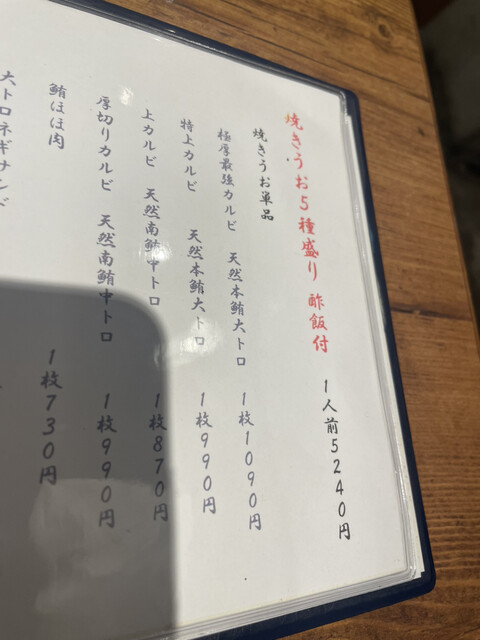 焼きうお5種盛り 酢飯付 1人前5240円
焼きうお単品
極厚最強カルビ 天然本鮪大トロ 1枚1090円
特上カルビ 天然本鮪大トロ 1枚990円
上カルビ 天然南鮪中トロ 1枚870円
厚切りカルビ 天然南鮪中トロ 1枚990円
鮪ほほ肉 1枚730円
大トロネギナンド